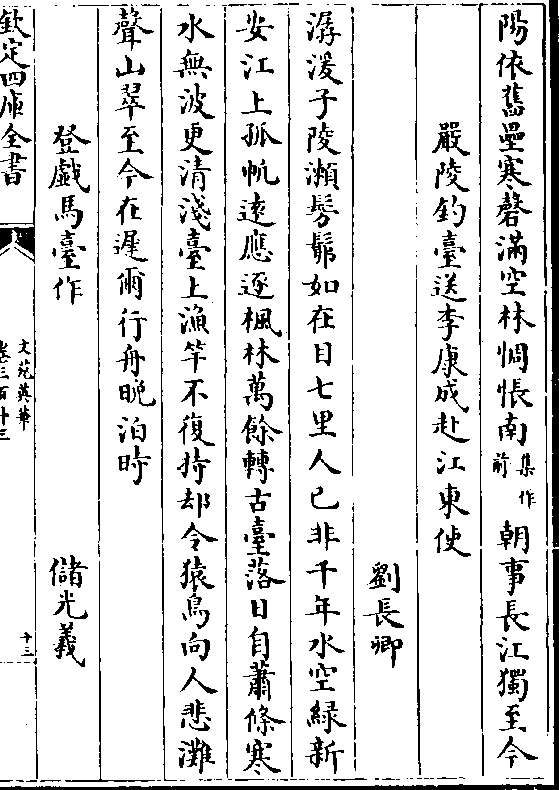 陽依舊壘寒磬滿空林惆悵南集作前朝事長江獨至今
嚴陵釣臺送李康成赴江東使
劉長卿
潺湲子陵瀨髣髴如在目七里人已非千年水空緑新
安江上孤帆逺應逐楓林萬餘轉古臺落日自蕭條寒
水無波更清淺臺上漁竿不復持却令猿鳥向人悲灘
聲山翠至今在遲爾行舟晚泊時
登戯馬臺作
儲光義
欽定四庫全書
文苑英華
卷三百十三
十三